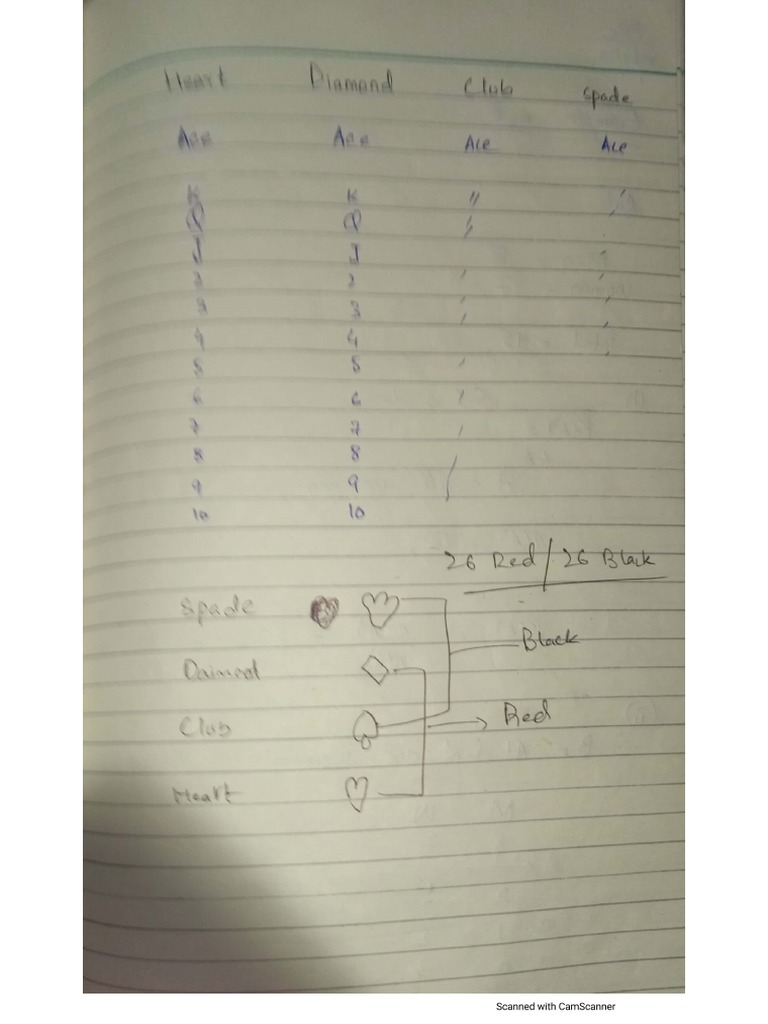 Heart Diamond Club Spade
Ace Ace Ace Ace
K K "
Q Q "
J J
2 2
3 3
4 4
5 5
6 6
7 7
8 8
9 9
10 10
26 Red / 26 Black
Spade
Black
Daimod
Red
Club
Heart
Scanned with CamScanner